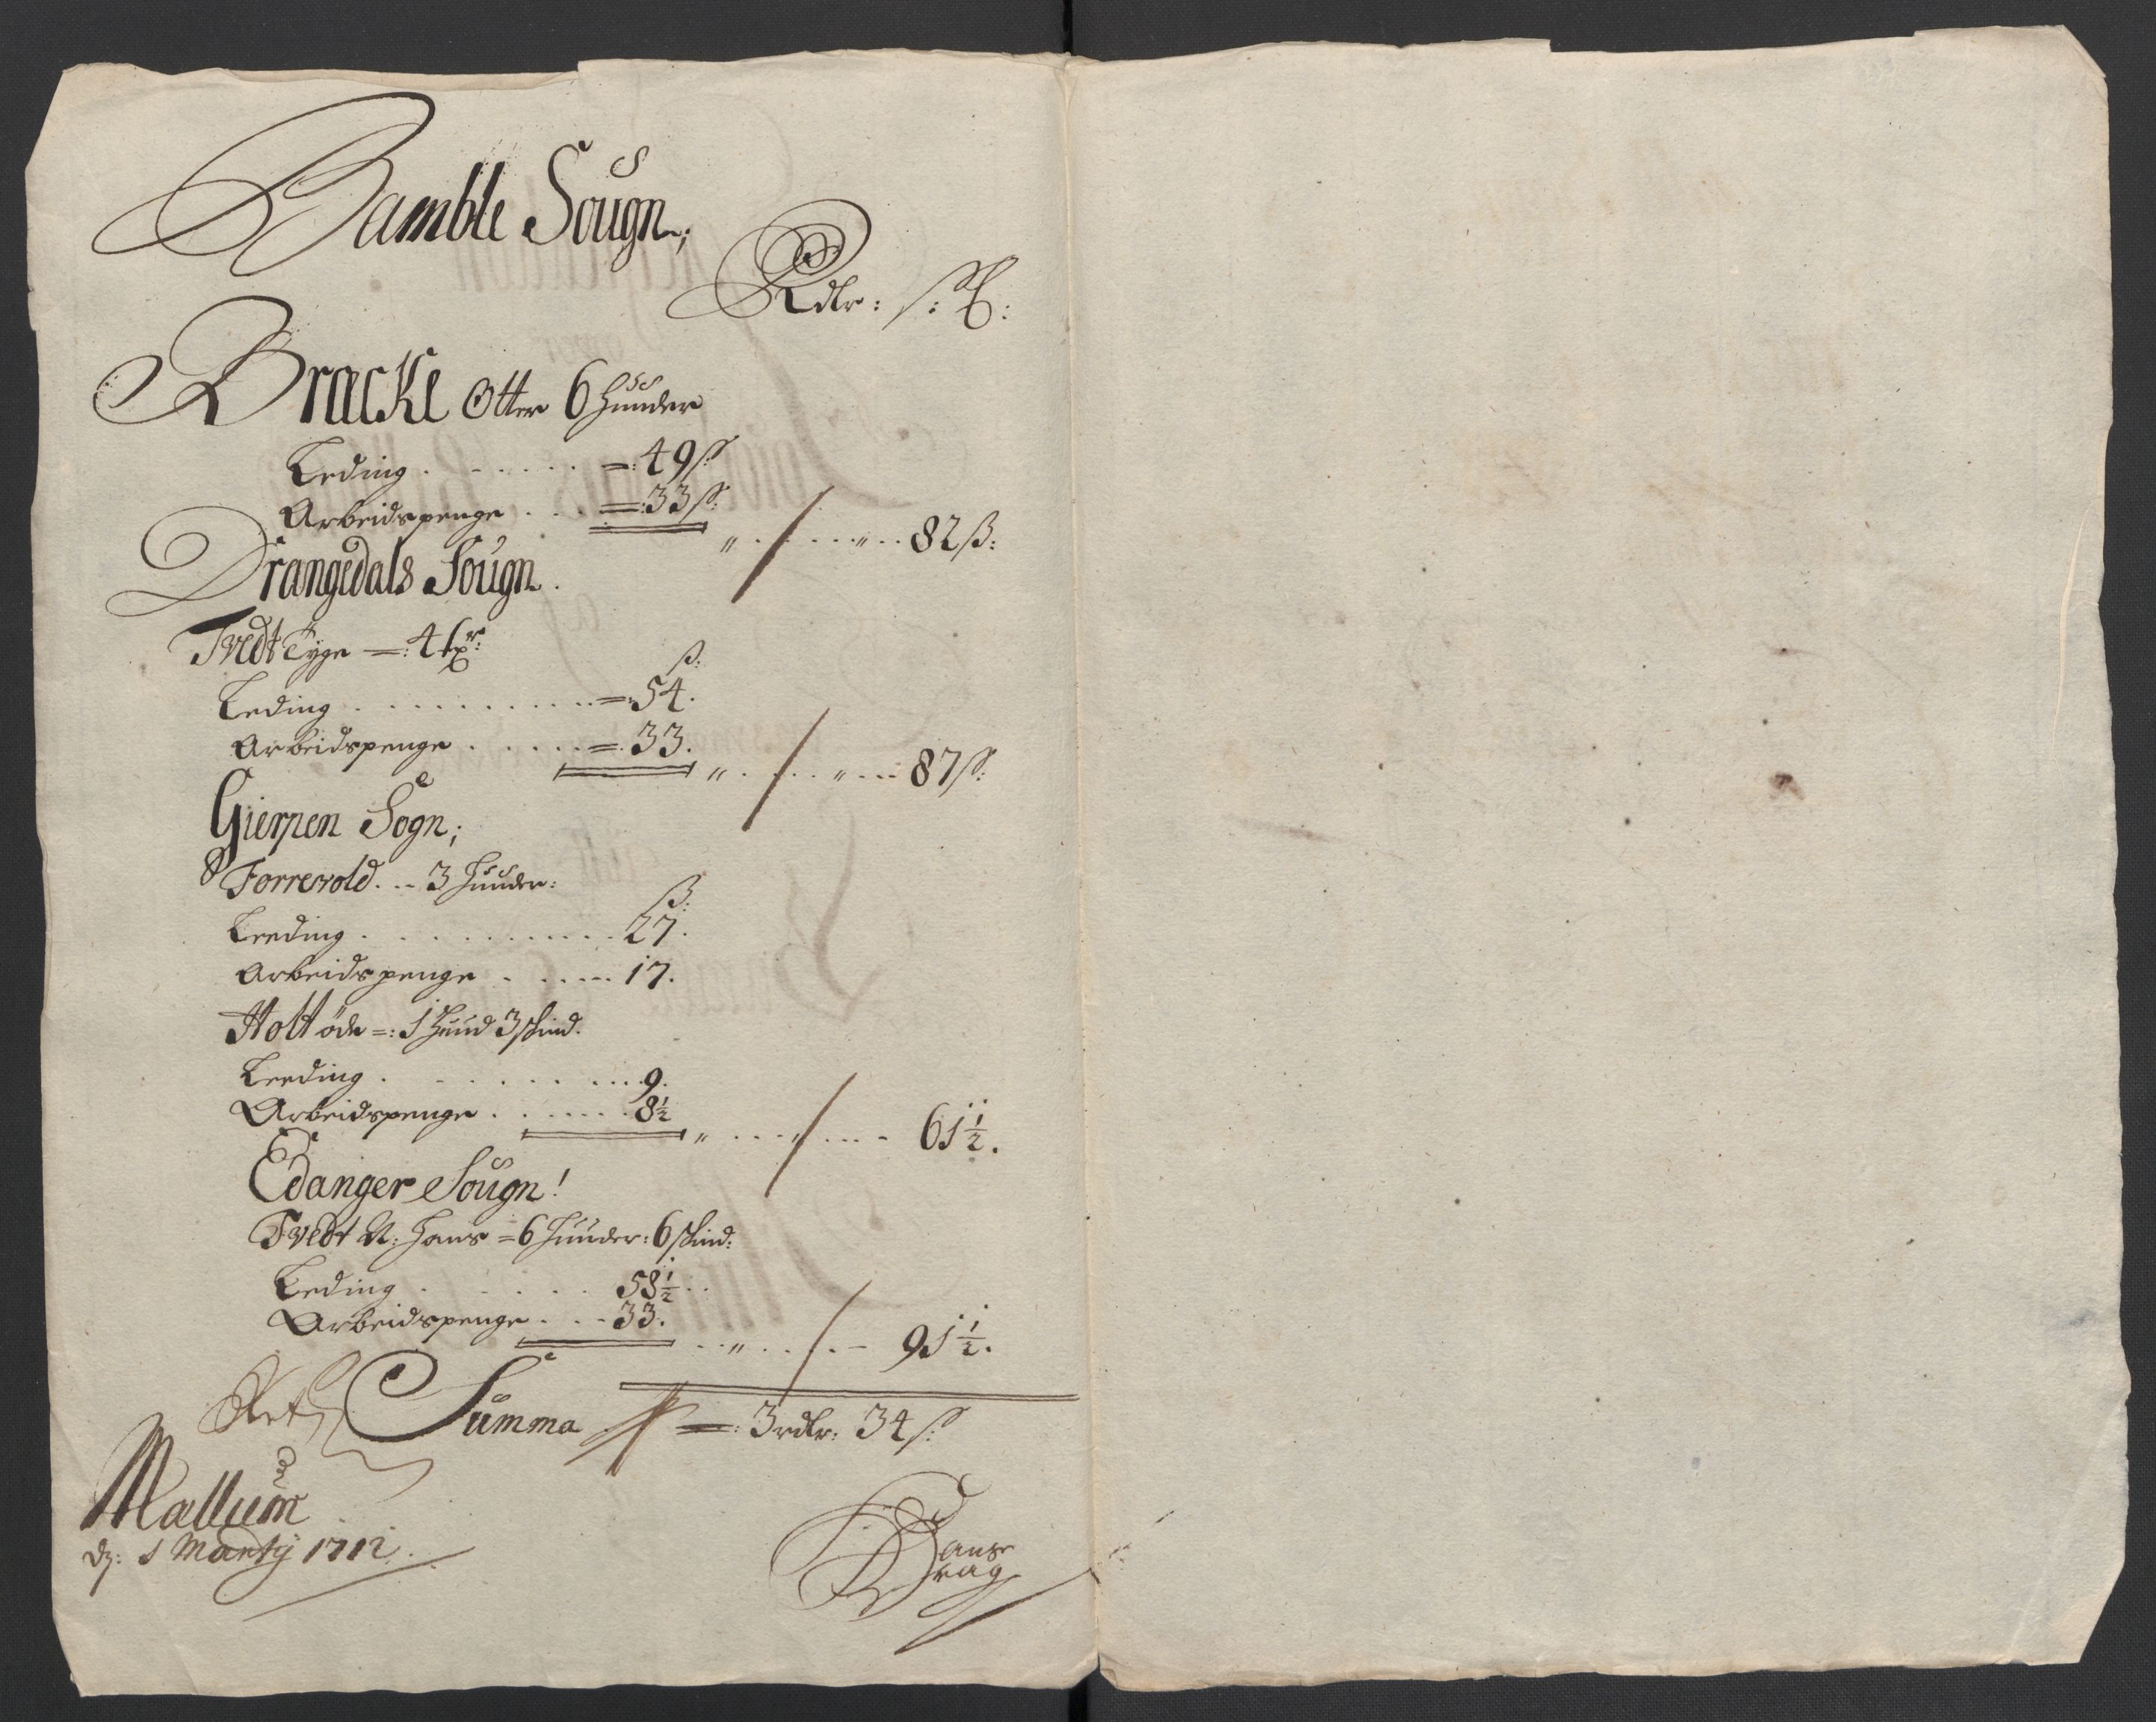 Bamble Sougn;
Rdlr: ß:
Bracke Otter 6 huuder
Leding . . . . . . =: 49ß
Arbeidspenge . . . =: 33ß:
„ . . . „ . . 82ß:
Drangedals Sougn.
Tvedt Tyge =: 4
ß:
Leding . . . . . . . . . =: 54.
Arbeidspenge . . . . . =. 33.
„ . . . . „ . . . 87ß:
Gierpen Sogn;
Forrevold. .. 3 Huuder:
ß:
Leeding . . . . . . . . . . 27.
Arbeidspenge . . . . . 17.
Holt øde =: 1 huud 3 skind.
Leeding . . . . . . . . . 9.
Arbeidspenge . . . . . . 8½
„ . . . „ . . . 61½.
Edanger Sougn!
Tvedt N: Hans = 6 huuder: 6 skind:
Leding . . . . . . 58½ . .
Arbeidspenge . . . 33.
. . „ . . . . – 91½.
Summa =: 3 rdlr: 34ß:
Mællum
dj: 1 Martij 1712.
Hans
Krag